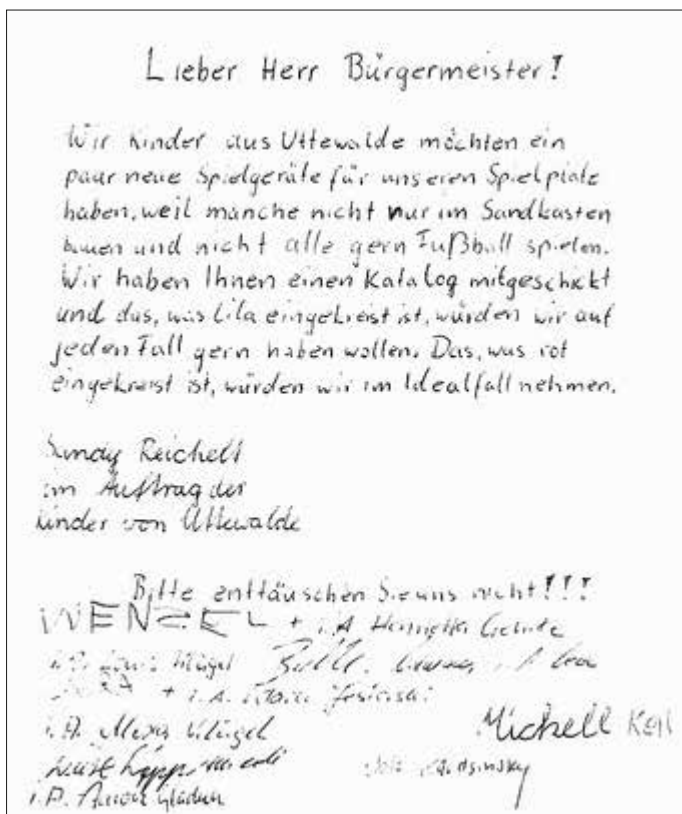 Lieber Herr Bürgermeister!
Wir Kinder aus Uttewalde möchten ein
paar neue Spielgeräte für unseren Spielplatz
haben, weil manche nicht nur im Sandkasten
bauen und nicht alle gern Fußball spielen.
Wir haben Ihnen einen Katalog mitgeschickt
und das, was lila eingekreist ist, würden wir auf
jeden Fall gern haben wollen. Das, was rot
eingekreist ist, würden wir im Idealfall nehmen.
Sandy Reichelt
im Auftrag der
Kinder von Uttewalde
Bitte enttäuschen Sie uns nicht!!!
WENZEL + i.A. Henriette
i.A.
+ i.A.
i.A. Klügel
Michell Keil
i.A.